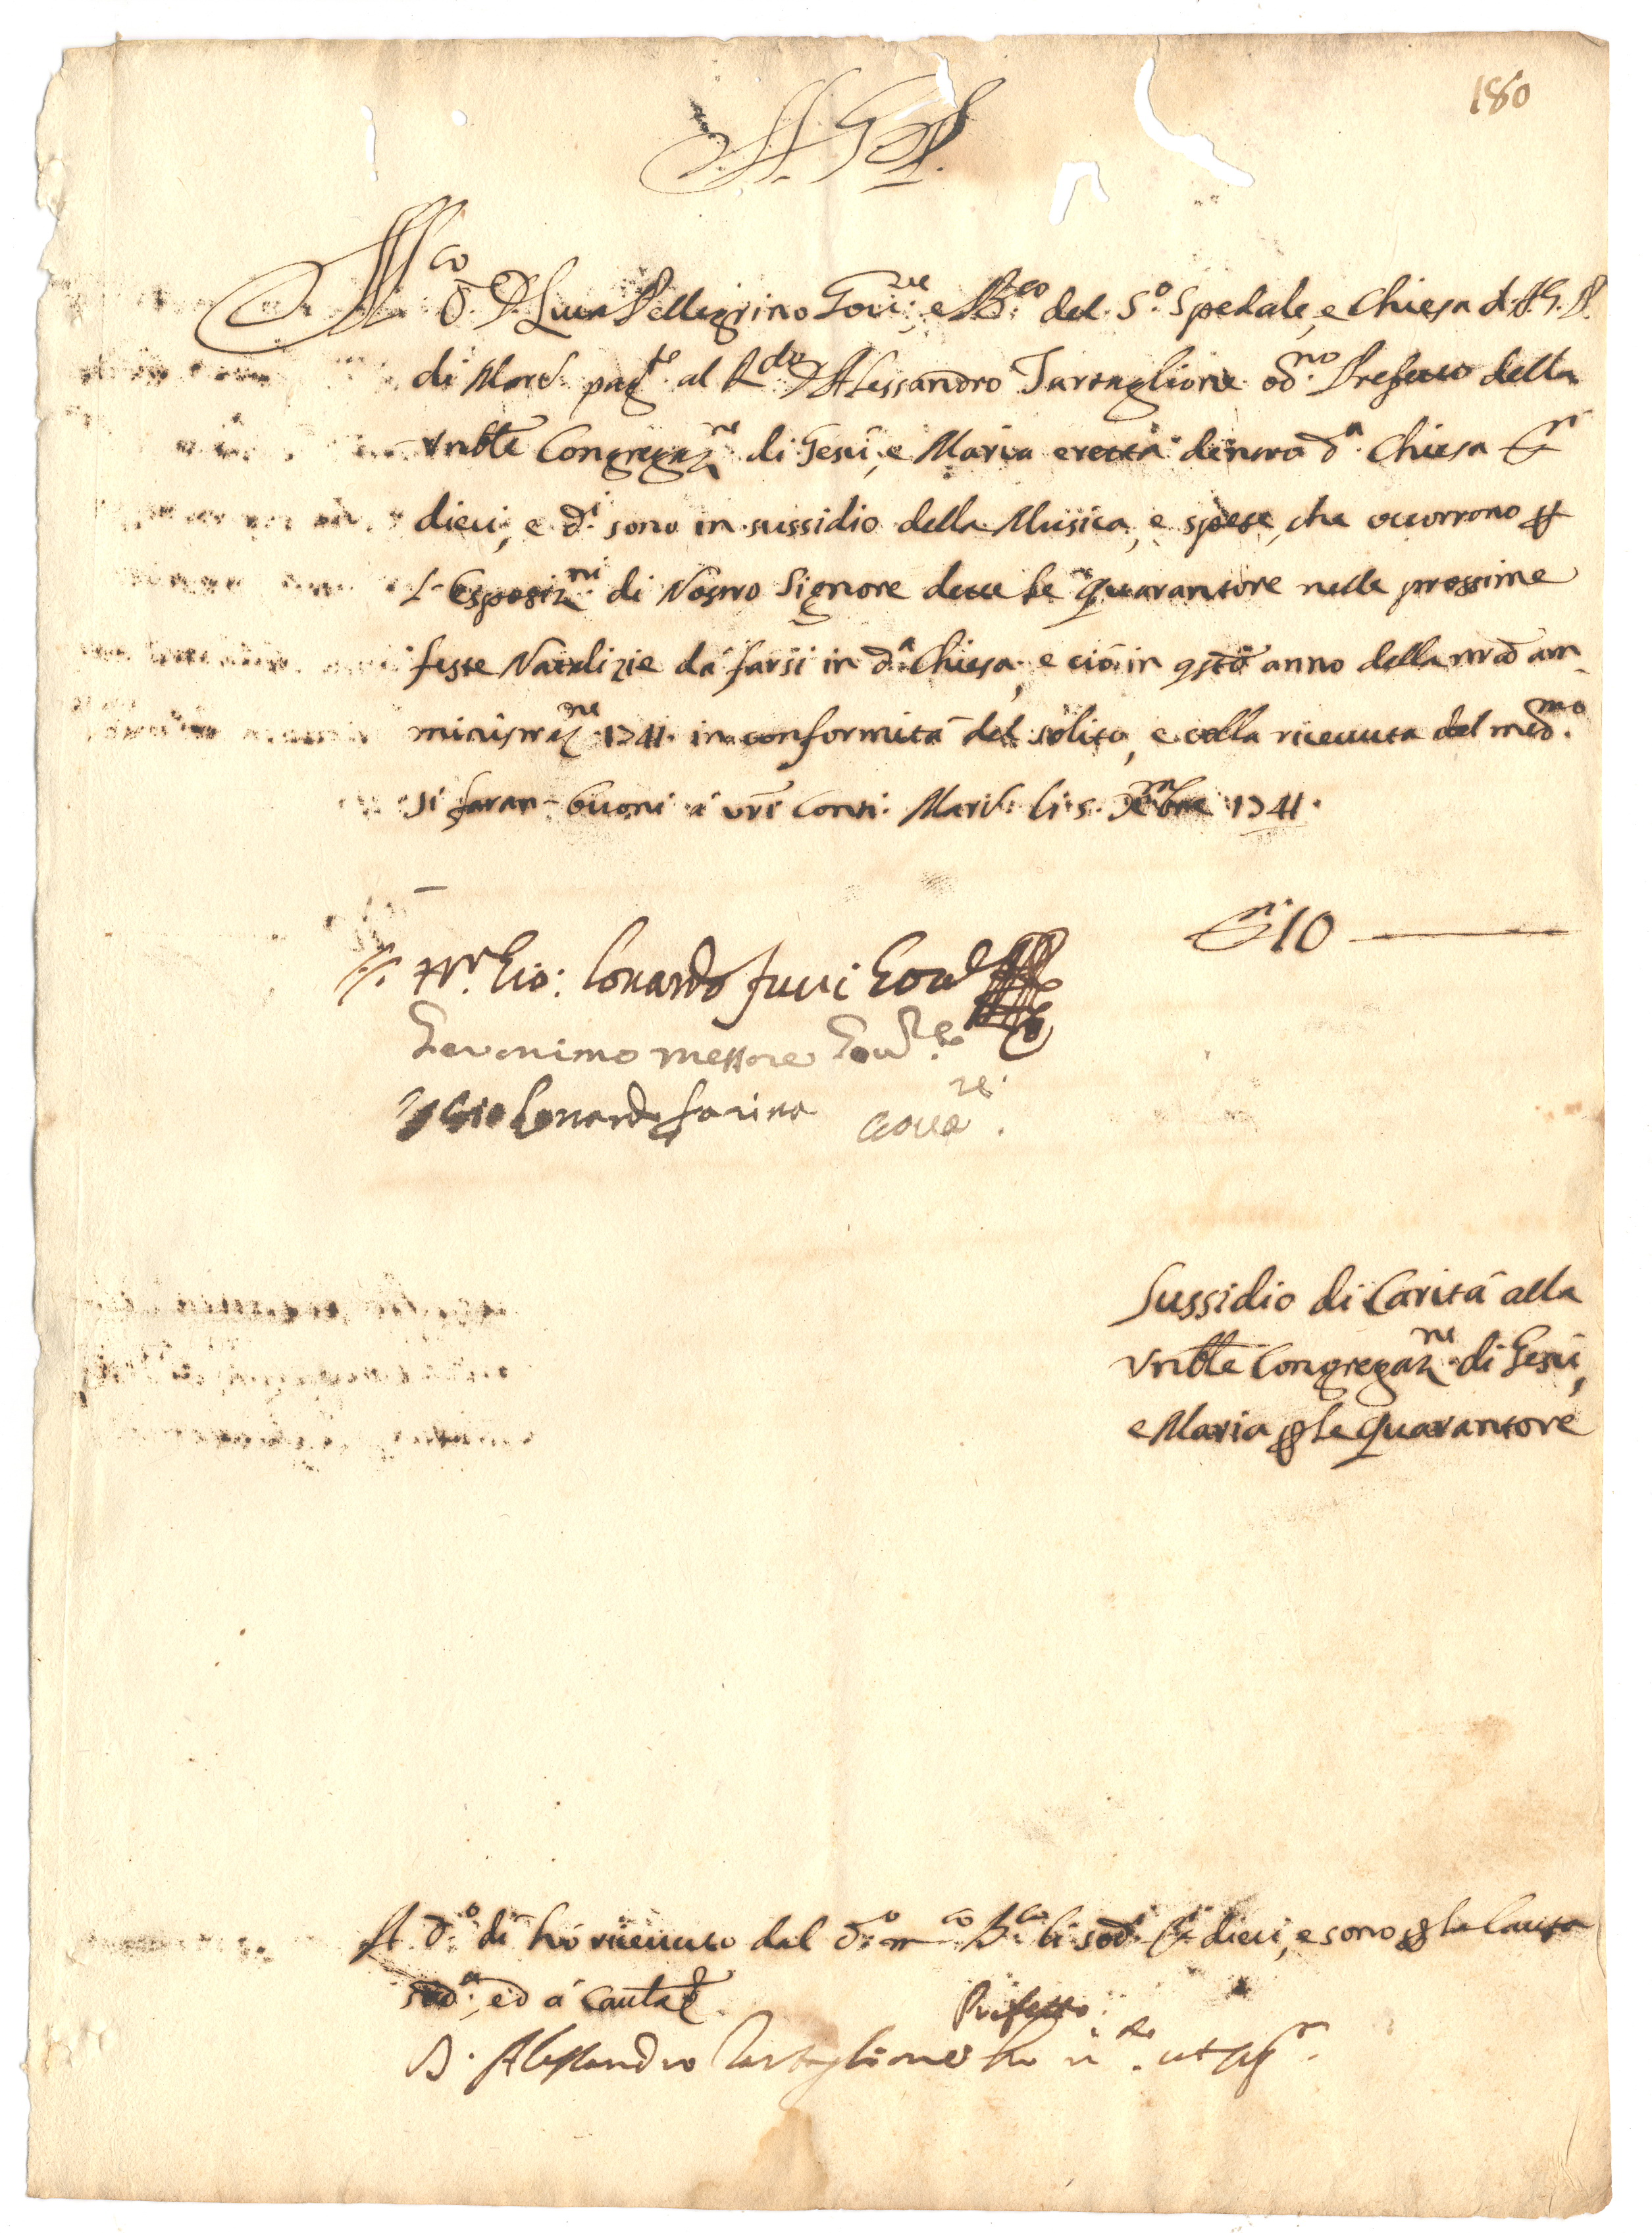 180
A. G. P.
M.co S.r D. Luca Pellegrino Gov.re, e B.co del S.o Spedale, e Chiesa d. A. G. P.
di Marc. pag.te al R.do D. Alessandro Tartaglione od.no Prefetto della
Vnble Congregaz.ne di Gesù, e Maria eretta dentro d.a Chiesa D.ti
dieci, e d.i sono in sussidio della Musica, e spese, che occorrono p
l'Esposiz.ni di Nostro Signore dette le quarantore nelle prossime
feste Natalizie da farsi in d.a Chiesa, e ciò in qsto anno della nra am
ministraz.ne 1741. in conformità del solito, e colla ricevuta del med.mo
si faran- buoni a vri conti. Marc. li 5. Xmbre 1741.
D.ti 10
Gio: Lonardo Gov.re
Geronimo Messore Gov.re
Gio Lonardo farina Gove.re
Sussidio di Carità alla
Vnble Congregaz.ne di Gesù,
e Maria p le quarantore
A d.o dì hò ricevuto dal d.o m.co B.co li sud.i D.ti dieci, e sono p la causa
sud.a, ed a cautela
Prefetto
D. Alessandro Tartaglione ho r.to ut sup.a